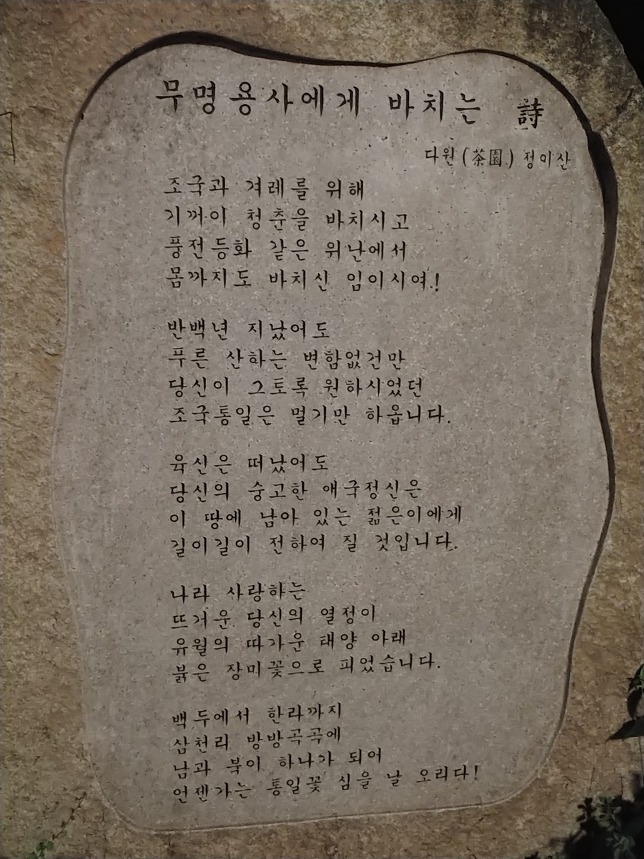 무명용사에게 바치는 詩
다원(茶園) 정이산
조국과 겨레를 위해
기꺼이 청춘을 바치시고
풍전등화 같은 위난에서
몸까지도 바치신 임이시여!
반백년 지났어도
푸른 산하는 변함없건만
당신이 그토록 원하시었던
조국통일은 멀기만 하옵니다.
육신은 떠났어도
당신의 숭고한 애국정신은
이 땅에 남아 있는 젊은이에게
길이길이 전하여 질 것입니다.
나라 사랑하는
뜨거운 당신의 열정이
유월의 따가운 태양 아래
붉은 장미꽃으로 피었습니다.
백두에서 한라까지
삼천리 방방곡곡에
남과 북이 하나가 되어
언젠가는 통일꽃 심을 날 오리다!